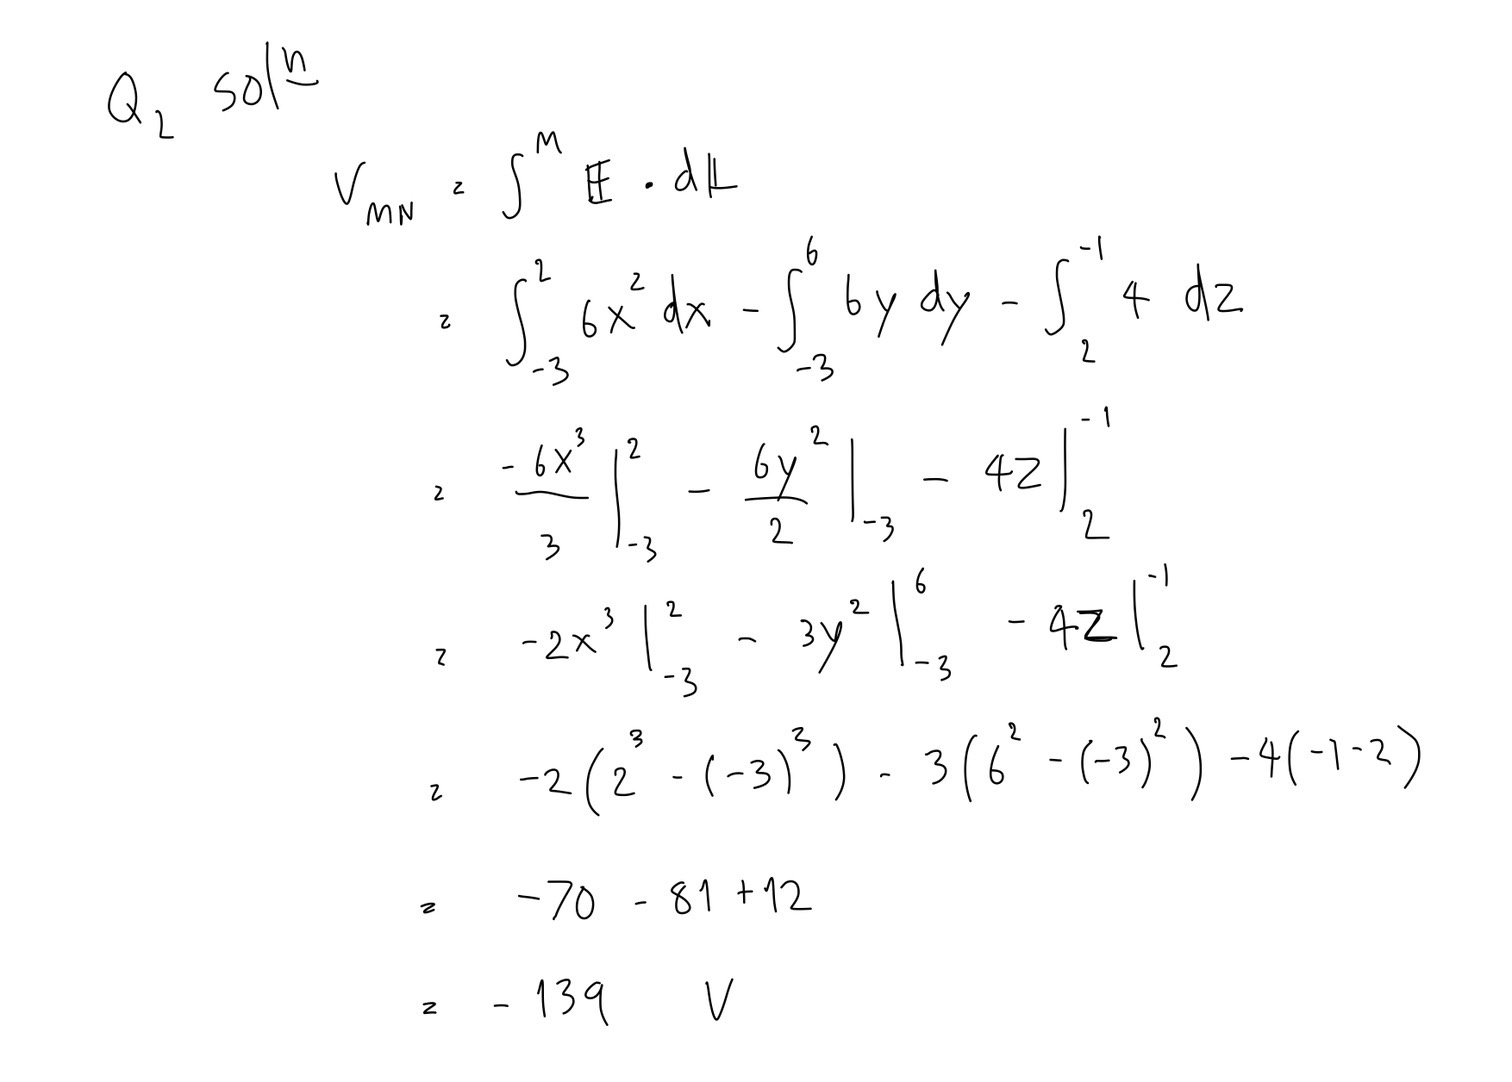 Q₂ solⁿ
V_MN = ∫^M E · dL
= ∫_{-3}^{2} 6x² dx - ∫_{-3}^{6} 6y dy - ∫_{2}^{-1} 4 dz
= -6x³/3 |_{-3}^{2} - 6y²/2 |_{-3} - 4z |_{2}^{-1}
= -2x³ |_{-3}^{2} - 3y² |_{-3}^{6} - 4z |_{2}^{-1}
= -2(2³ - (-3)³) - 3(6² - (-3)²) - 4(-1-2)
= -70 - 81 + 12
= -139 V